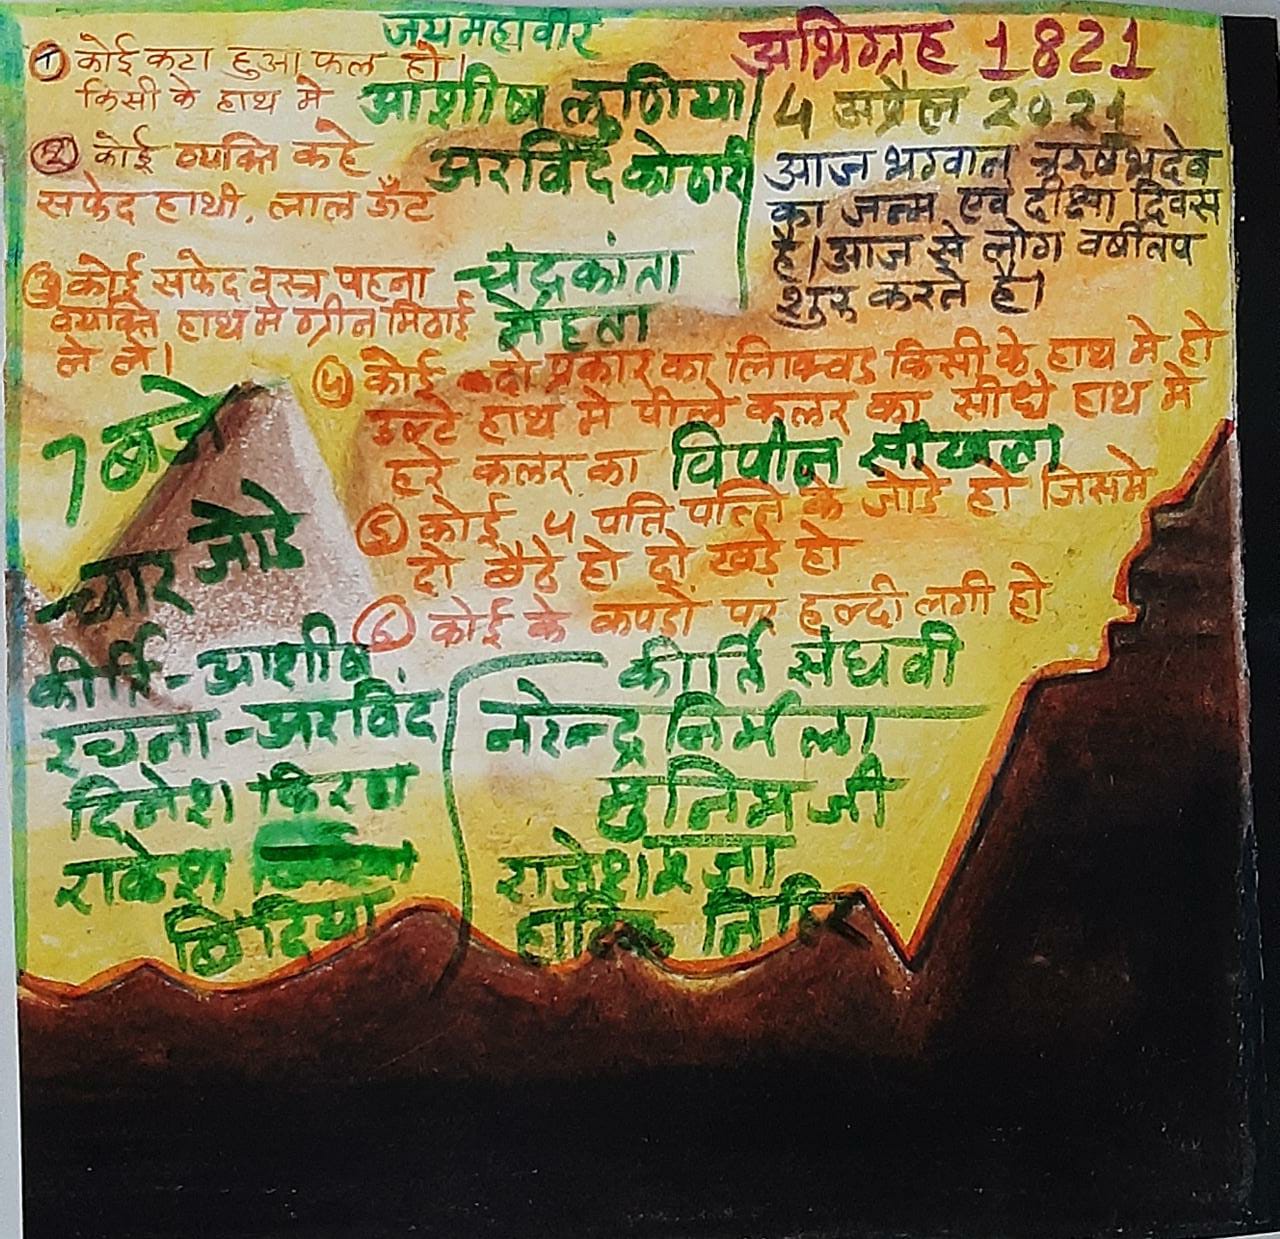 जय महावीर
अभिग्रह 1821
4 अप्रैल 2021
आज भगवान ऋषभदेव
का जन्म एवं दीक्षा दिवस
है। आज से लोग वर्षीतप
शुरू करते है।
① कोई कटा हुआ फल हो।
किसी के हाथ मे आशीष लुणिया
② कोई व्यक्ति कहे अरविंद कोठारी
सफेद हाथी, लाल ऊँट
③ कोई सफेद वस्त्र पहना चंद्रकांता
व्यक्ति हाथ मे ग्रीन मिठाई मेहता
ले ले।
④ कोई दो प्रकार का लिक्वड किसी के हाथ मे हो
उल्टे हाथ मे पीले कलर का सीधे हाथ मे
हरे कलर का विपीन सांखला
⑤ कोई 4 पति पत्नि के जोडे हो जिसमे
दो बैठे हो दो खडे हो
⑥ कोई के कपडो पर हल्दी लगी हो
7 बजे
चार जोडे
कीर्ति-आशीष
रचना-अरविंद
दिनेश किरण
राकेश
बिंदिया
कीर्ति संघवी
नरेन्द्र निर्मला
मुनिमजी
राजेश रंजा
हार्दिक